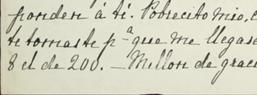 ponden á tí. Pobrecito mio,
te tomaste pª que me llegase
8 el de 200. _ Millon de grac